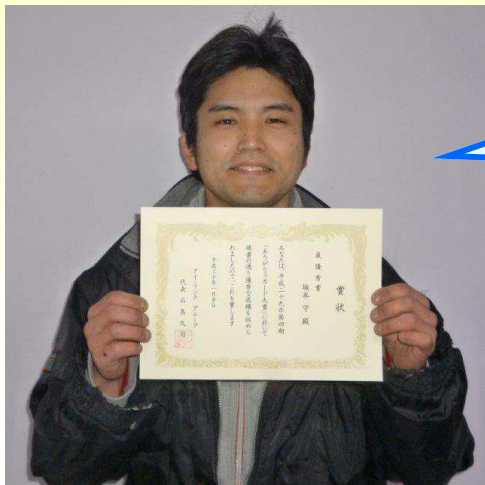 賞状
最優秀賞
坂本 守 殿
あなたは、平成二十九年第四期
「ありがとうカード大賞」に於いて
頭書の通り優秀な成績を収めら
れましたので、これを賞します
平成三十年一月吉日
アイリンク グループ
代表 石島